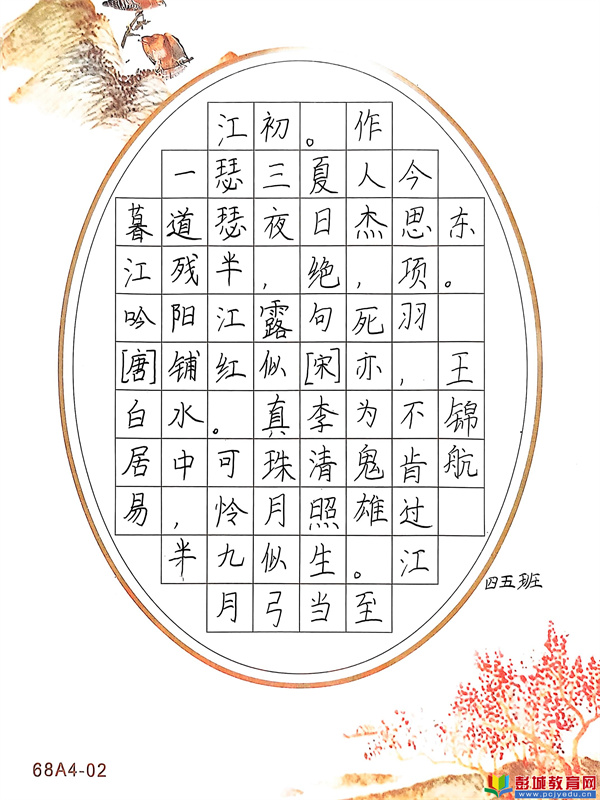 暮江吟[唐]白居易
一道残阳铺水中，半
江瑟瑟半江红。可怜九月
初三夜，露似真珠月似弓
。夏日绝句[宋]李清照生当
作人杰，死亦为鬼雄。至
今思项羽，不肯过江
东。 王锦航
四五班
68A4-02
彭城教育网
www.pcjyedu.cn